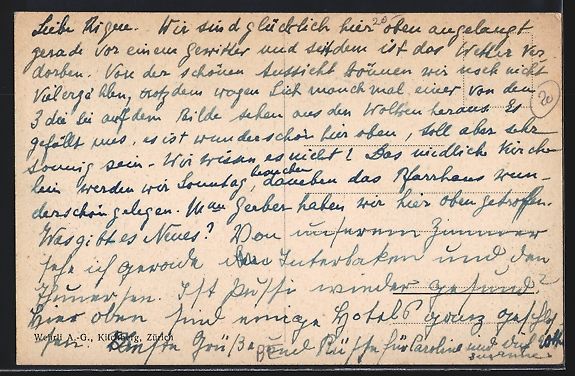 Liebe Eigene. Wir sind glücklich hier oben angelangt
gerade vor einem Gewitter und seitdem ist das Wetter ver-
dorben. Von der schönen Aussicht können wir noch nicht
viel erzählen, trotzdem wagen sich manchmal einer von den
3 die Sie auf dem Bilde sehen aus den Wolken heraus. Es
gefällt uns, es ist wunderschön hier oben, soll aber sehr
sonnig sein. Wir wissen es nicht! Das niedliche Kirch-
lein werden wir Sonntag besuchen, daneben das Pfarrhaus wun-
derschön gelegen. Gerber haben wir hier oben getroffen.
Was gibt es Neues? Von unserem Zimmer
sehe ich gerade Interlaken und den
Thunersee. Ist wieder gesund?
Hier oben sind einige Hotels ganz geschlos
sen. Grüße und Küsse für Caroline und dich
Wehrli A.-G., Kilchberg, Zürich
20